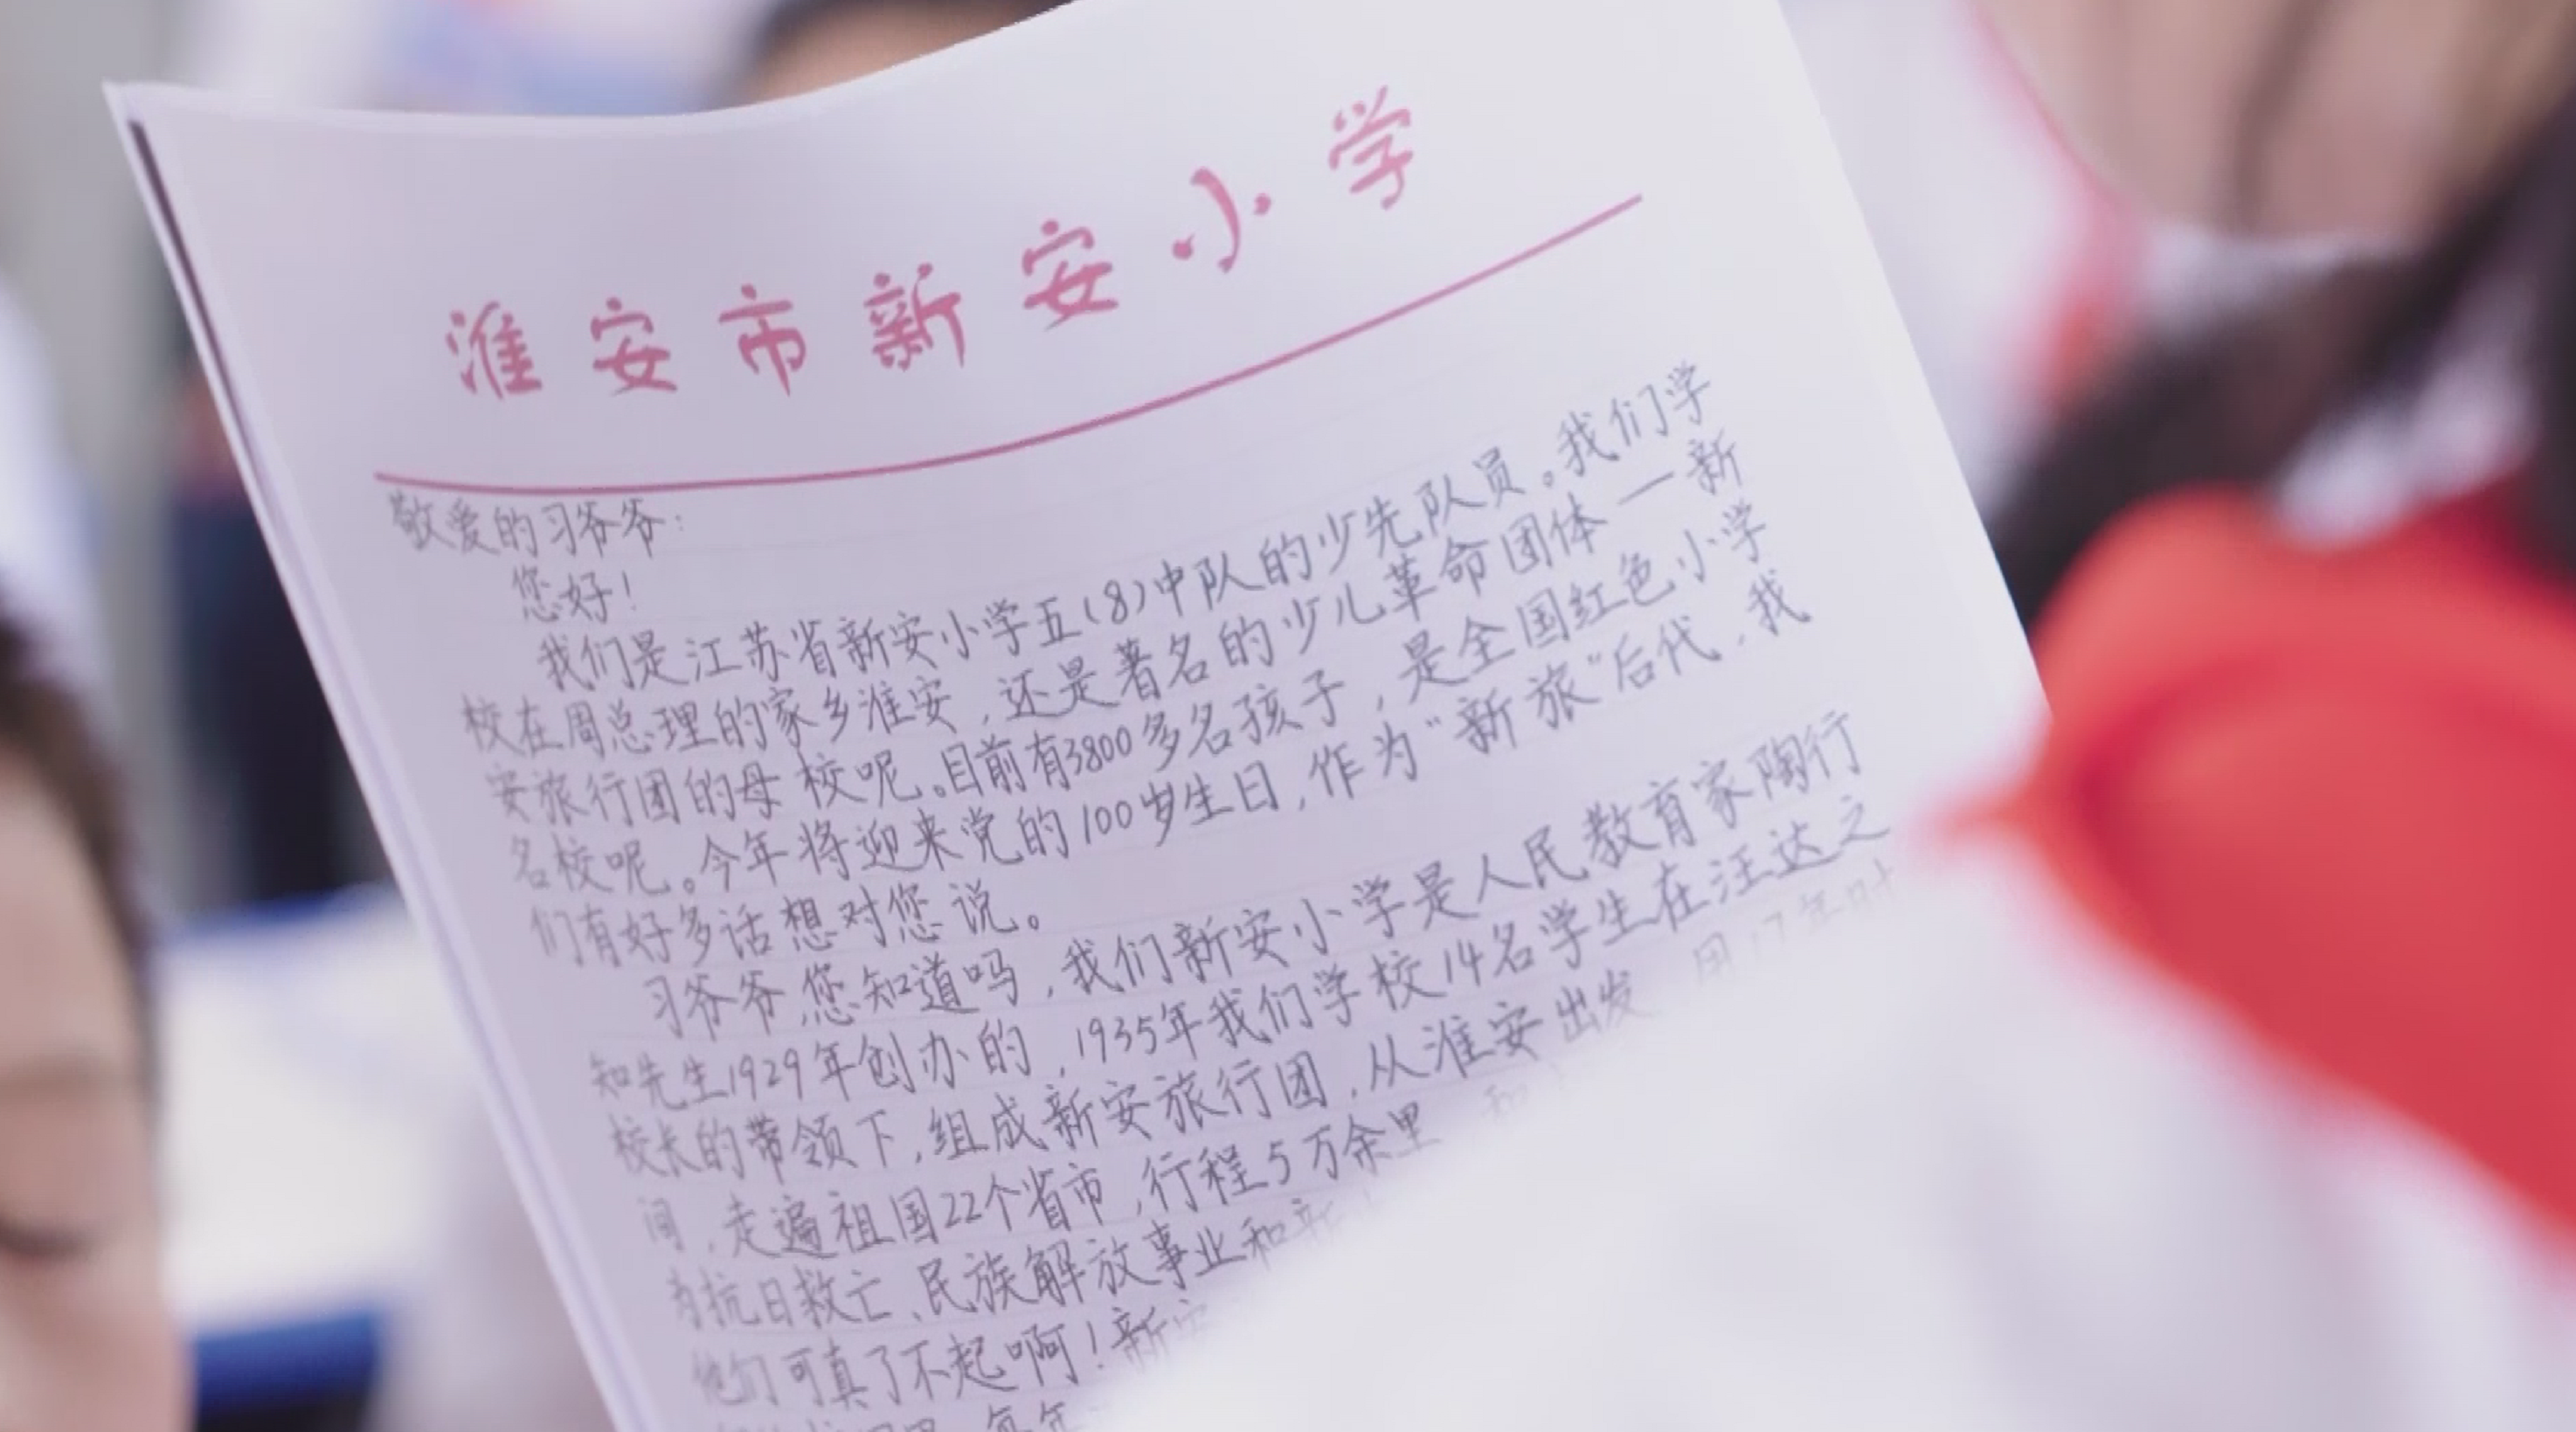 淮安市新安小学
敬爱的习爷爷:
您好!
我们是江苏省新安小学五(8)中队的少先队员。我们学
校在周总理的家乡淮安,还是著名的少儿革命团体—新
安旅行团的母校呢。目前有3800多名孩子,是全国红色小学
名校呢。今年将迎来党的100岁生日,作为"新旅"后代,我
们有好多话想对您说。
习爷爷,您知道吗,我们新安小学是人民教育家陶行
知先生1929年创办的,1935年我们学校14名学生在汪达之
校长的带领下,组成新安旅行团,从淮安出发 17年时
间,走遍祖国22个省市,行程5万余里
为抗日救亡、民族解放事业和新
他们可真了不起啊!新安
每年